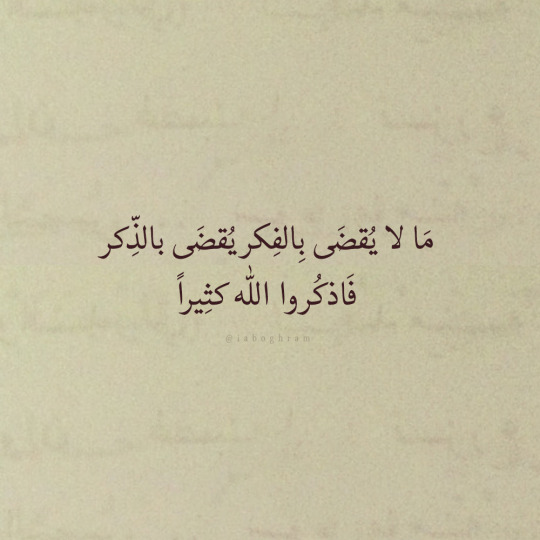 مَا لا يُقضَى بِالفِكر يُقضَى بالذِّكر
فَاذكُروا الله كثِيراً